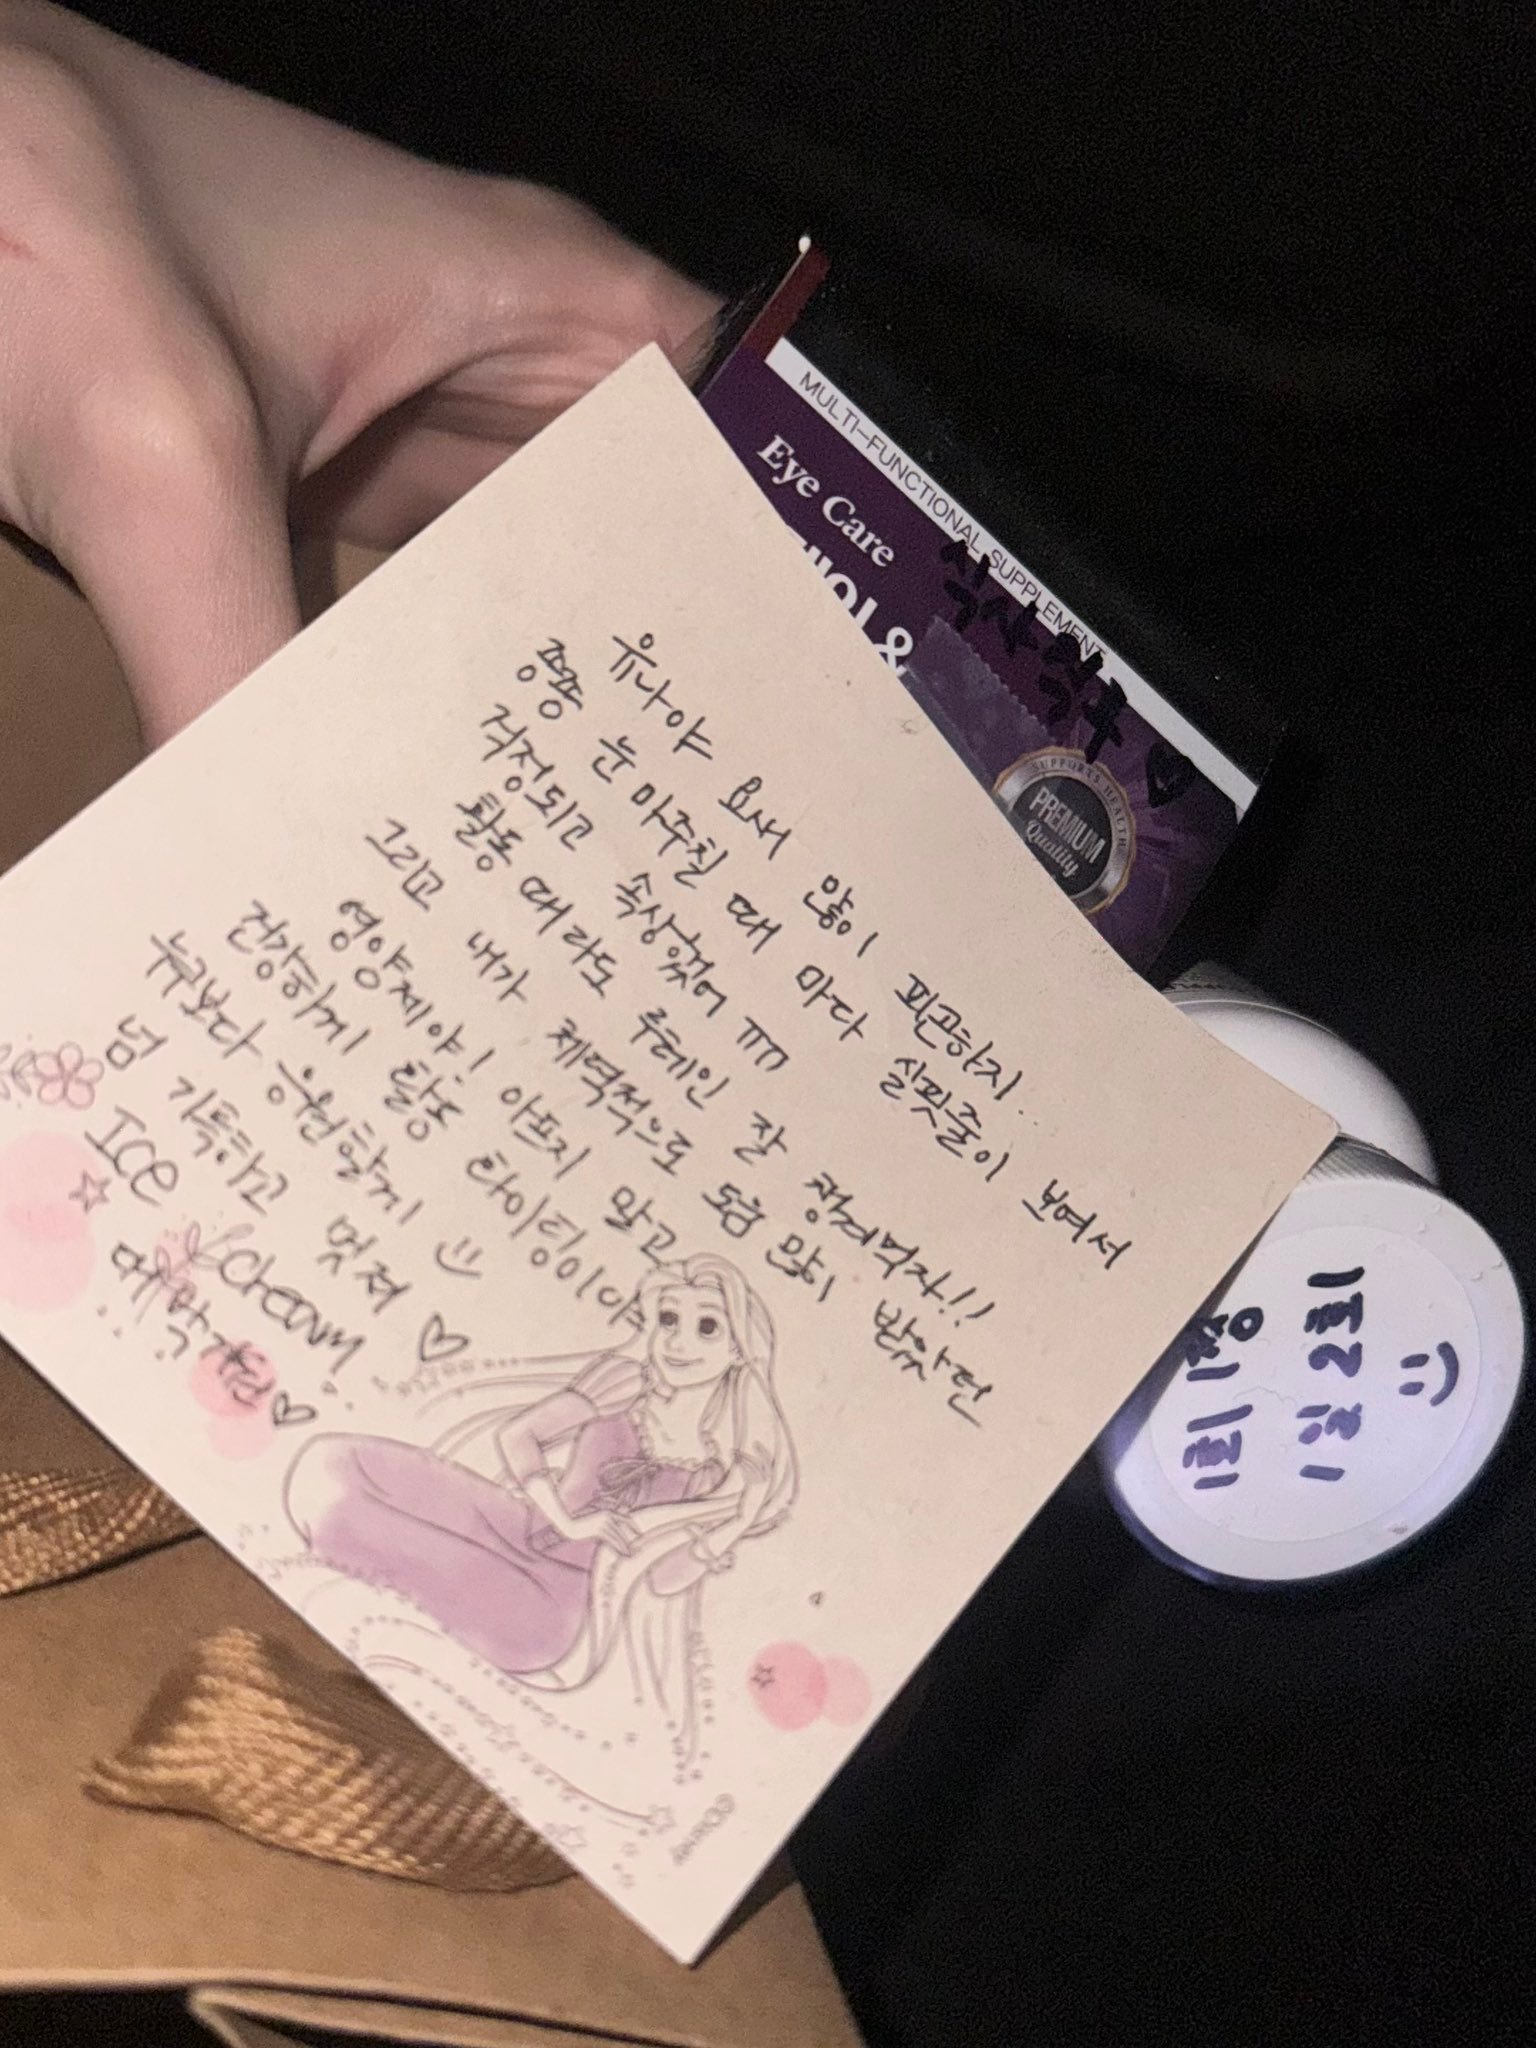 유나야 요새 많이 피곤하지..
쭁쭁 눈 마주칠 때 마다 실핏줄이 보여서
걱정되고 속상했어 ㅠㅠ
활동 때라도 루테인 잘 챙겨먹자!!
그리고 내가 체력적으로 도움 많이 받았던
영양제야! 아프지 말고
건강하게 활동 화이팅이야
누구보다 응원할게 :)
넘 기특하고 멋져 ♡
Ice cream
매니저 ♡
©Disney
MULTI-FUNCTIONAL SUPPLEMENT
Eye Care
&
식사 직후 ♡
SUPPORTS HEALTH
PREMIUM
Quality
1회 1정
1일 2회
:)